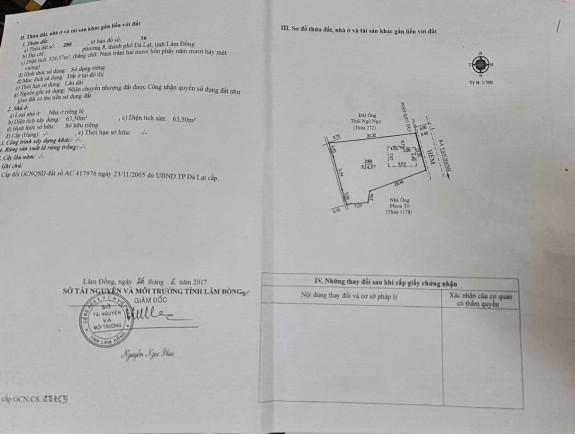 II. Thửa đất, nhà ở và tài sản khác gắn liền với đất
1. Thửa đất:
a) Thửa đất số: 280 , tờ bản đồ số: 16
b) Địa chỉ: phường 8, thành phố Đà Lạt, tỉnh Lâm Đồng
c) Diện tích: 524,57m², (bằng chữ: Năm trăm hai mươi bốn phẩy năm mươi bảy mét vuông)
d) Hình thức sử dụng: Sử dụng riêng
đ) Mục đích sử dụng: Đất ở tại đô thị
e) Thời hạn sử dụng: Lâu dài
g) Nguồn gốc sử dụng: Nhận chuyển nhượng đất được Công nhận quyền sử dụng đất như giao đất có thu tiền sử dụng đất
2. Nhà ở:
a) Loại nhà ở: Nhà ở riêng lẻ
b) Diện tích xây dựng: 63,50m² , c) Diện tích sàn: 63,50m²
d) Hình thức sở hữu: Sở hữu riêng
đ) Cấp (Hạng): -/- , e) Thời hạn sở hữu: -/-
3. Công trình xây dựng khác: -/-
4. Rừng sản xuất là rừng trồng: -/-
5. Cây lâu năm: -/-
Ghi chú:
Cấp đổi GCNQSD đất số AC 417976 ngày 23/11/2005 do UBND TP Đà Lạt cấp.
Lâm Đồng, ngày 26 tháng 6 năm 2017
SỞ TÀI NGUYÊN VÀ MÔI TRƯỜNG TỈNH LÂM ĐỒNG
GIÁM ĐỐC
SỞ
TÀI NGUYÊN
VÀ
MÔI TRƯỜNG
Nguyễn Ngọc Phúc
cấp GCN:CS.
III. Sơ đồ thửa đất, nhà ở và tài sản khác gắn liền với đất
Tỷ lệ: 1/500
Đất Ông
Thái Ngô Ngọc
(Thửa 272)
280
524,57
HẺM
Nhà Ông
Phạm Tố
(Thửa 1178)
IV. Những thay đổi sau khi cấp giấy chứng nhận
Nội dung thay đổi và cơ sở pháp lý
Xác nhận của cơ quan
có thẩm quyền